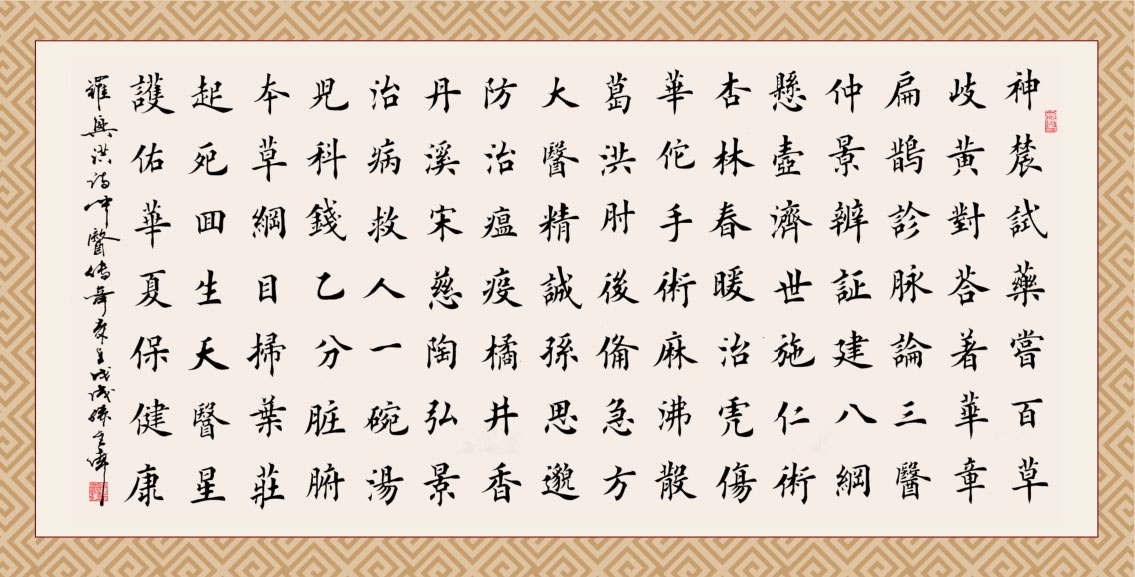 神農試藥嘗百草
岐黃對荅著華章
扁鵲診脉論三醫
仲景辨証建八綱
懸壺濟世施仁術
杏林春暖治虎傷
華佗手術麻沸散
葛洪肘後俻急方
大醫精誠孫思邈
防治瘟疫橘井香
丹溪宋慈陶弘景
治病救人一碗湯
兒科錢乙分脏腑
本草綱目掃葉莊
起死囬生天醫星
護佑華夏保健康
羅興洪詩中醫傳奇戊戌